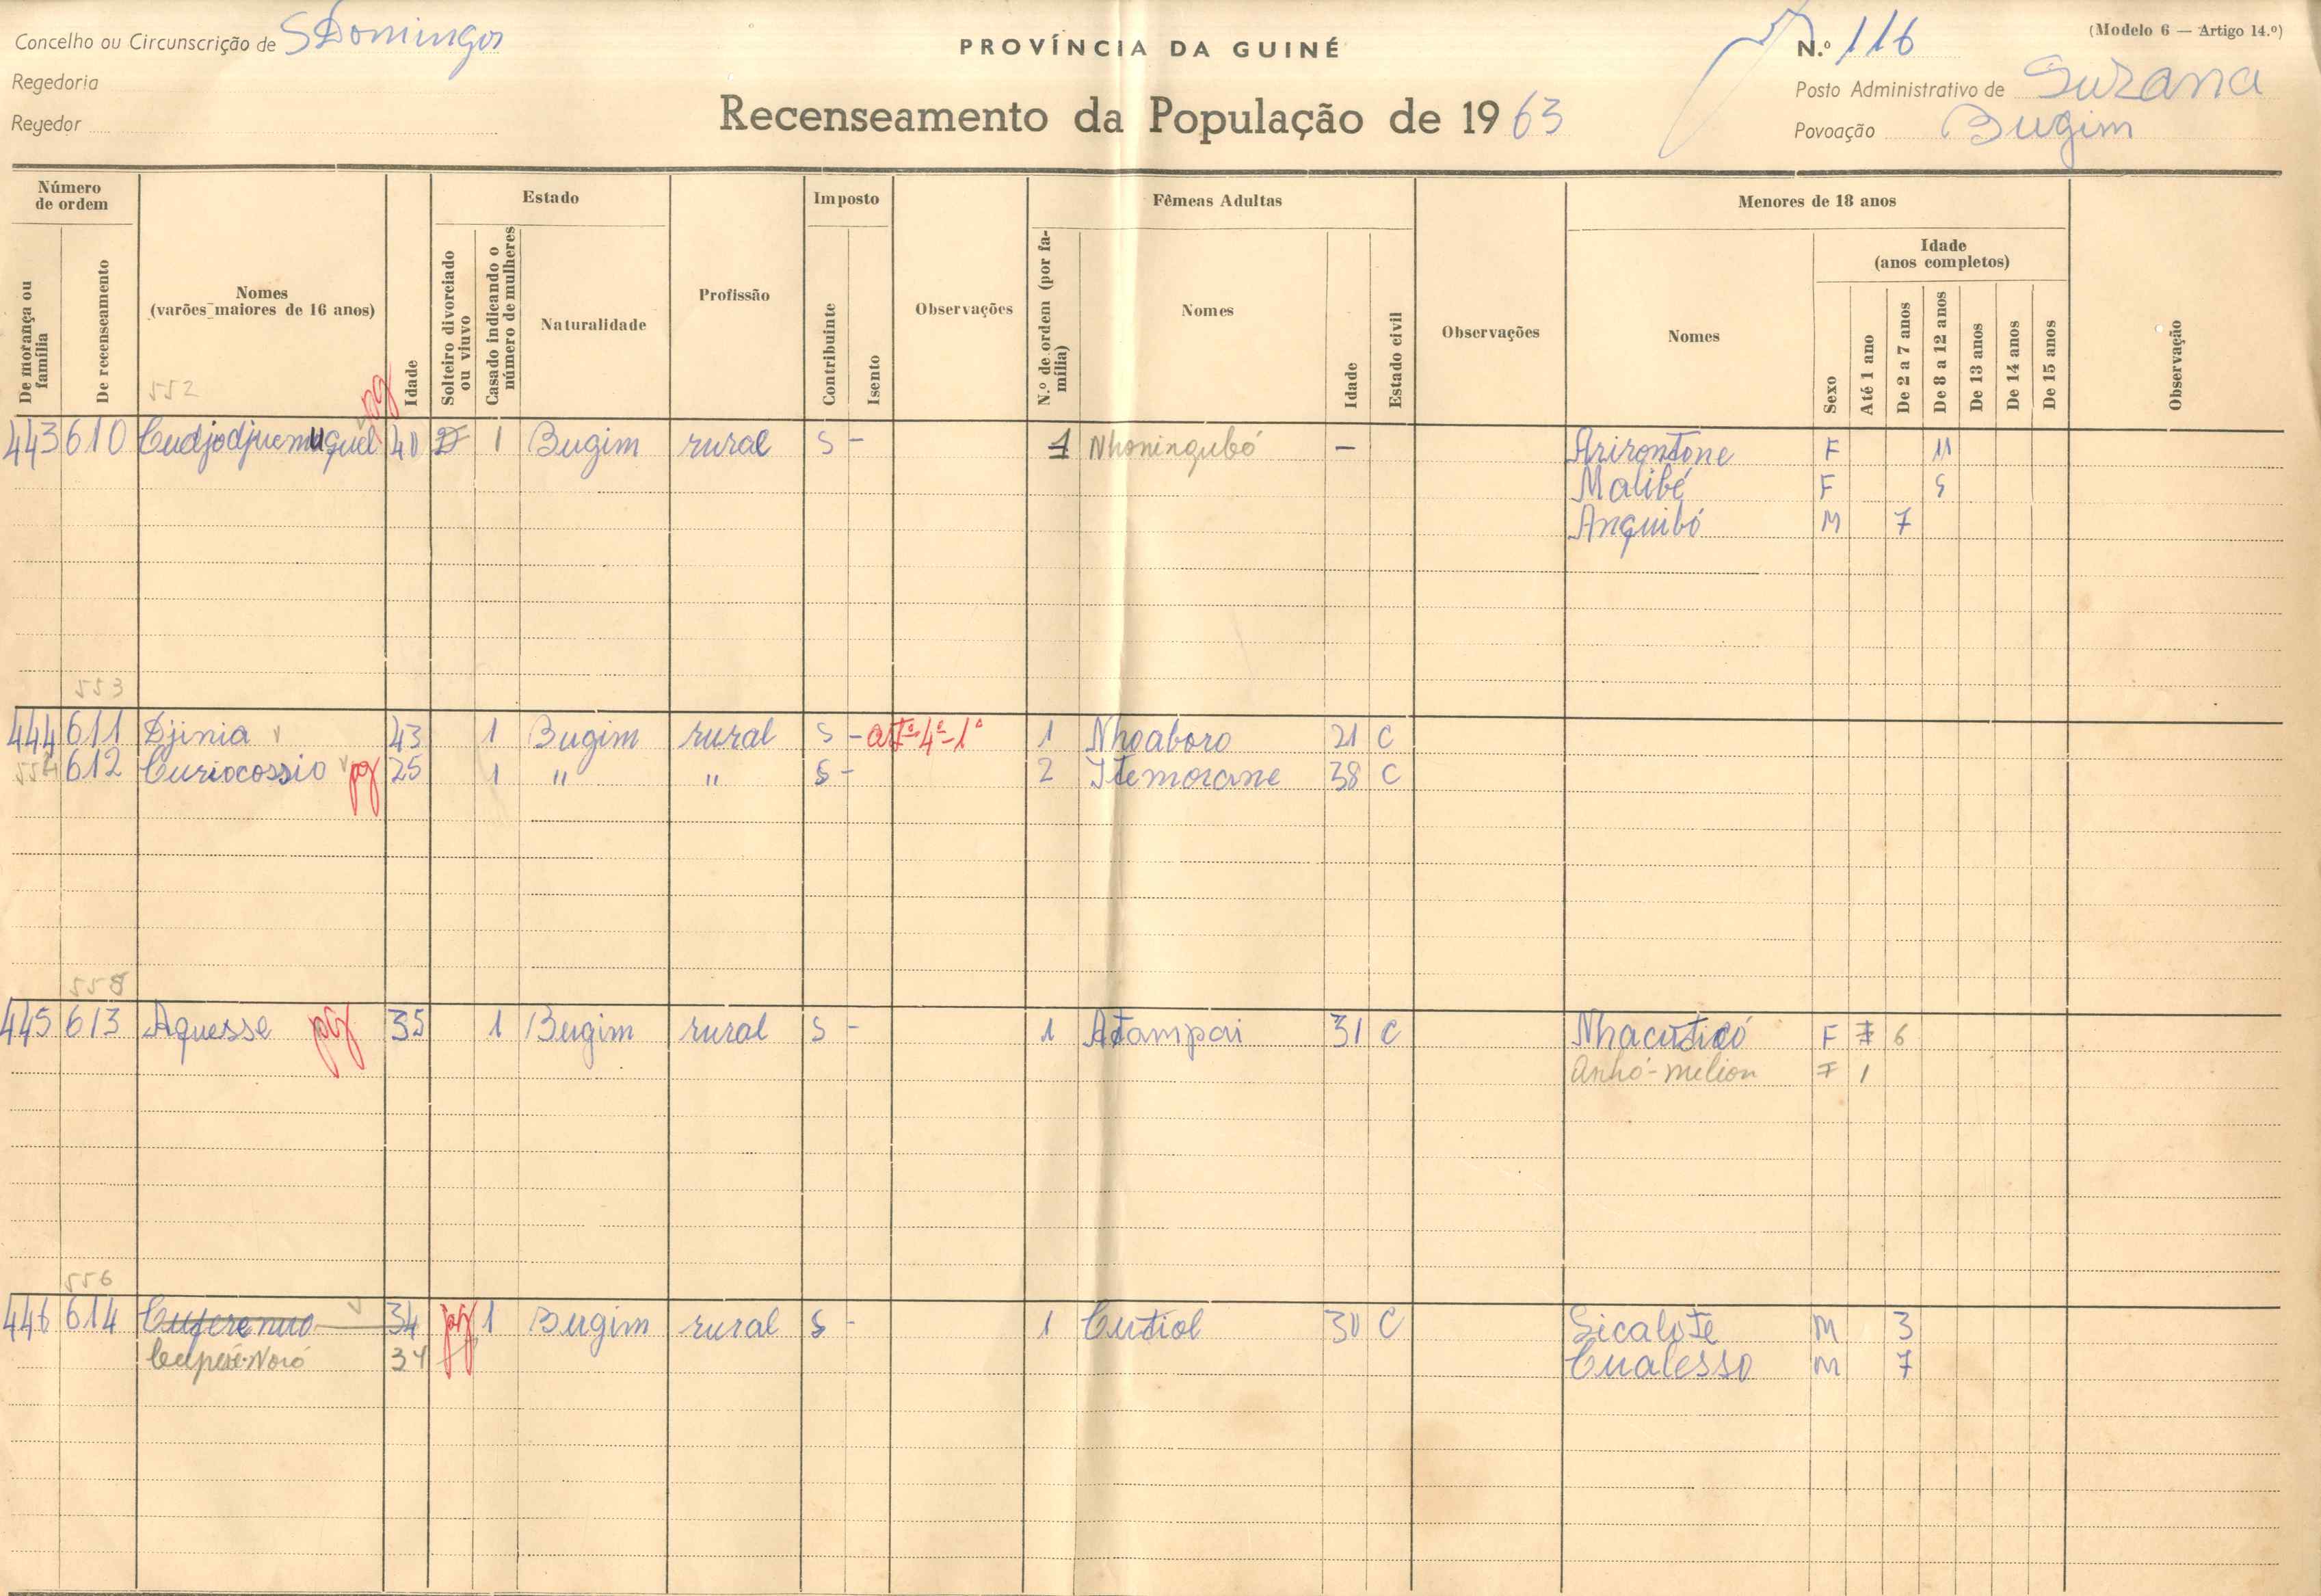 Concelho ou Circunscrição de S Domingos
PROVÍNCIA DA GUINÉ
N.º 116
(Modelo 6 — Artigo 14.º)
Regedoria
Posto Administrativo de Suzana
Regedor
Recenseamento da População de 1963
Povoação Bugim
Número de ordem
De morança ou família
De recenseamento
Nomes (varões maiores de 16 anos)
Idade
Estado
Solteiro divorciado ou viuvo
Casado indicando o número de mulheres
Naturalidade
Profissão
Imposto
Contribuinte
Isento
Observações
Fêmeas Adultas
N.º de ordem (por família)
Nomes
Idade
Estado civil
Observações
Menores de 18 anos
Nomes
Sexo
Idade (anos completos)
Até 1 ano
De 2 a 7 anos
De 8 a 12 anos
De 13 anos
De 14 anos
De 15 anos
Observação
552 pg
443 610 Cudjodjuemuquel 40 1 Bugim rural S - 1 Nhoningubó — Arirontone F 11
Malibé F 9
Anquibó M 7
553
444 611 Djinia 43 1 Bugim rural S - artº 4º-1º 1 Nhoaboro 21 C
554 612 Curiocossio pg 25 1 " " S - 2 Itemorane 38 C
558
445 613 Aquesse pg 35 1 Bugim rural S - 1 Atampai 31 C Nhacuticó F 6
Anhó-milion F 1
556
446 614 34 pg 1 Bugim rural S - 1 Cutiol 30 C Sicalote M 3
34 Cualesso M 7